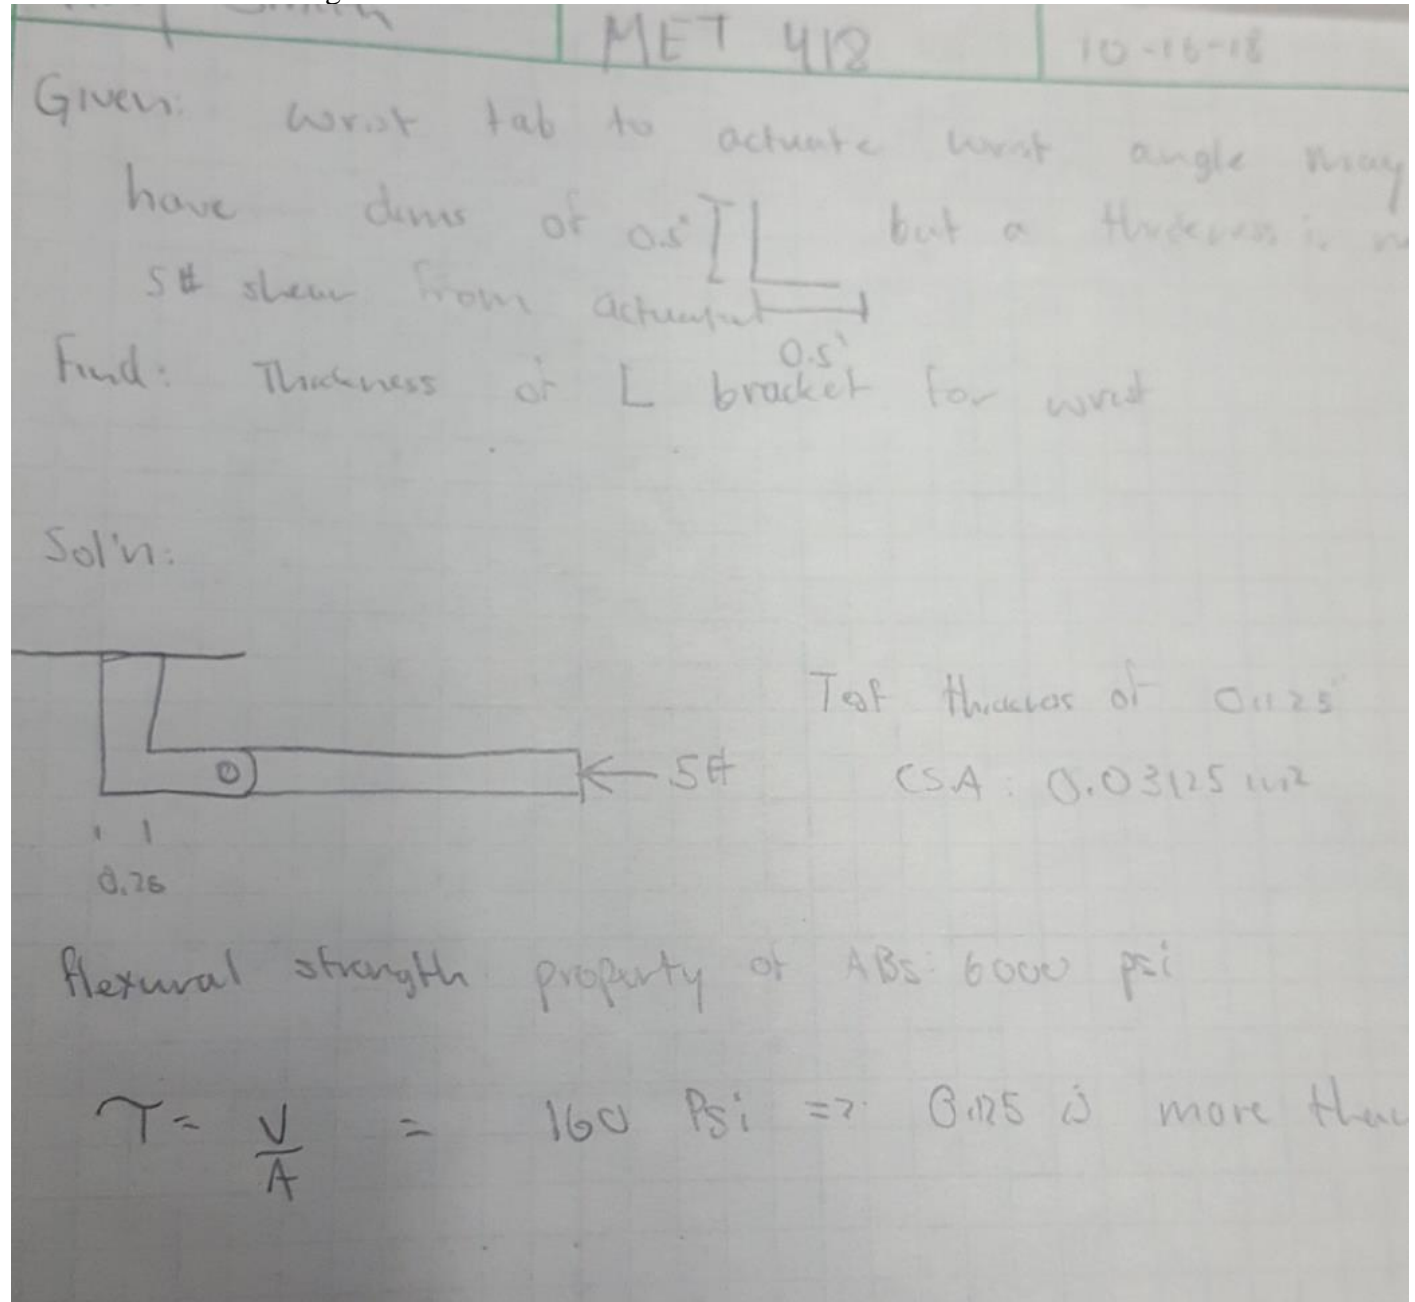 MET 418 10-16-18
Given: wrist tab to actuate wrist angle may
have dims of 0.5" but a thickness is
5# shear from
0.5"
Find: Thickness of L bracket for wrist
Sol'n:
Test thickness of 0.125"
5# CSA: 0.03125 in²
0.25
flexural strength property of ABS: 6000 psi
τ = V/A = 160 Psi => 0.125 is more than